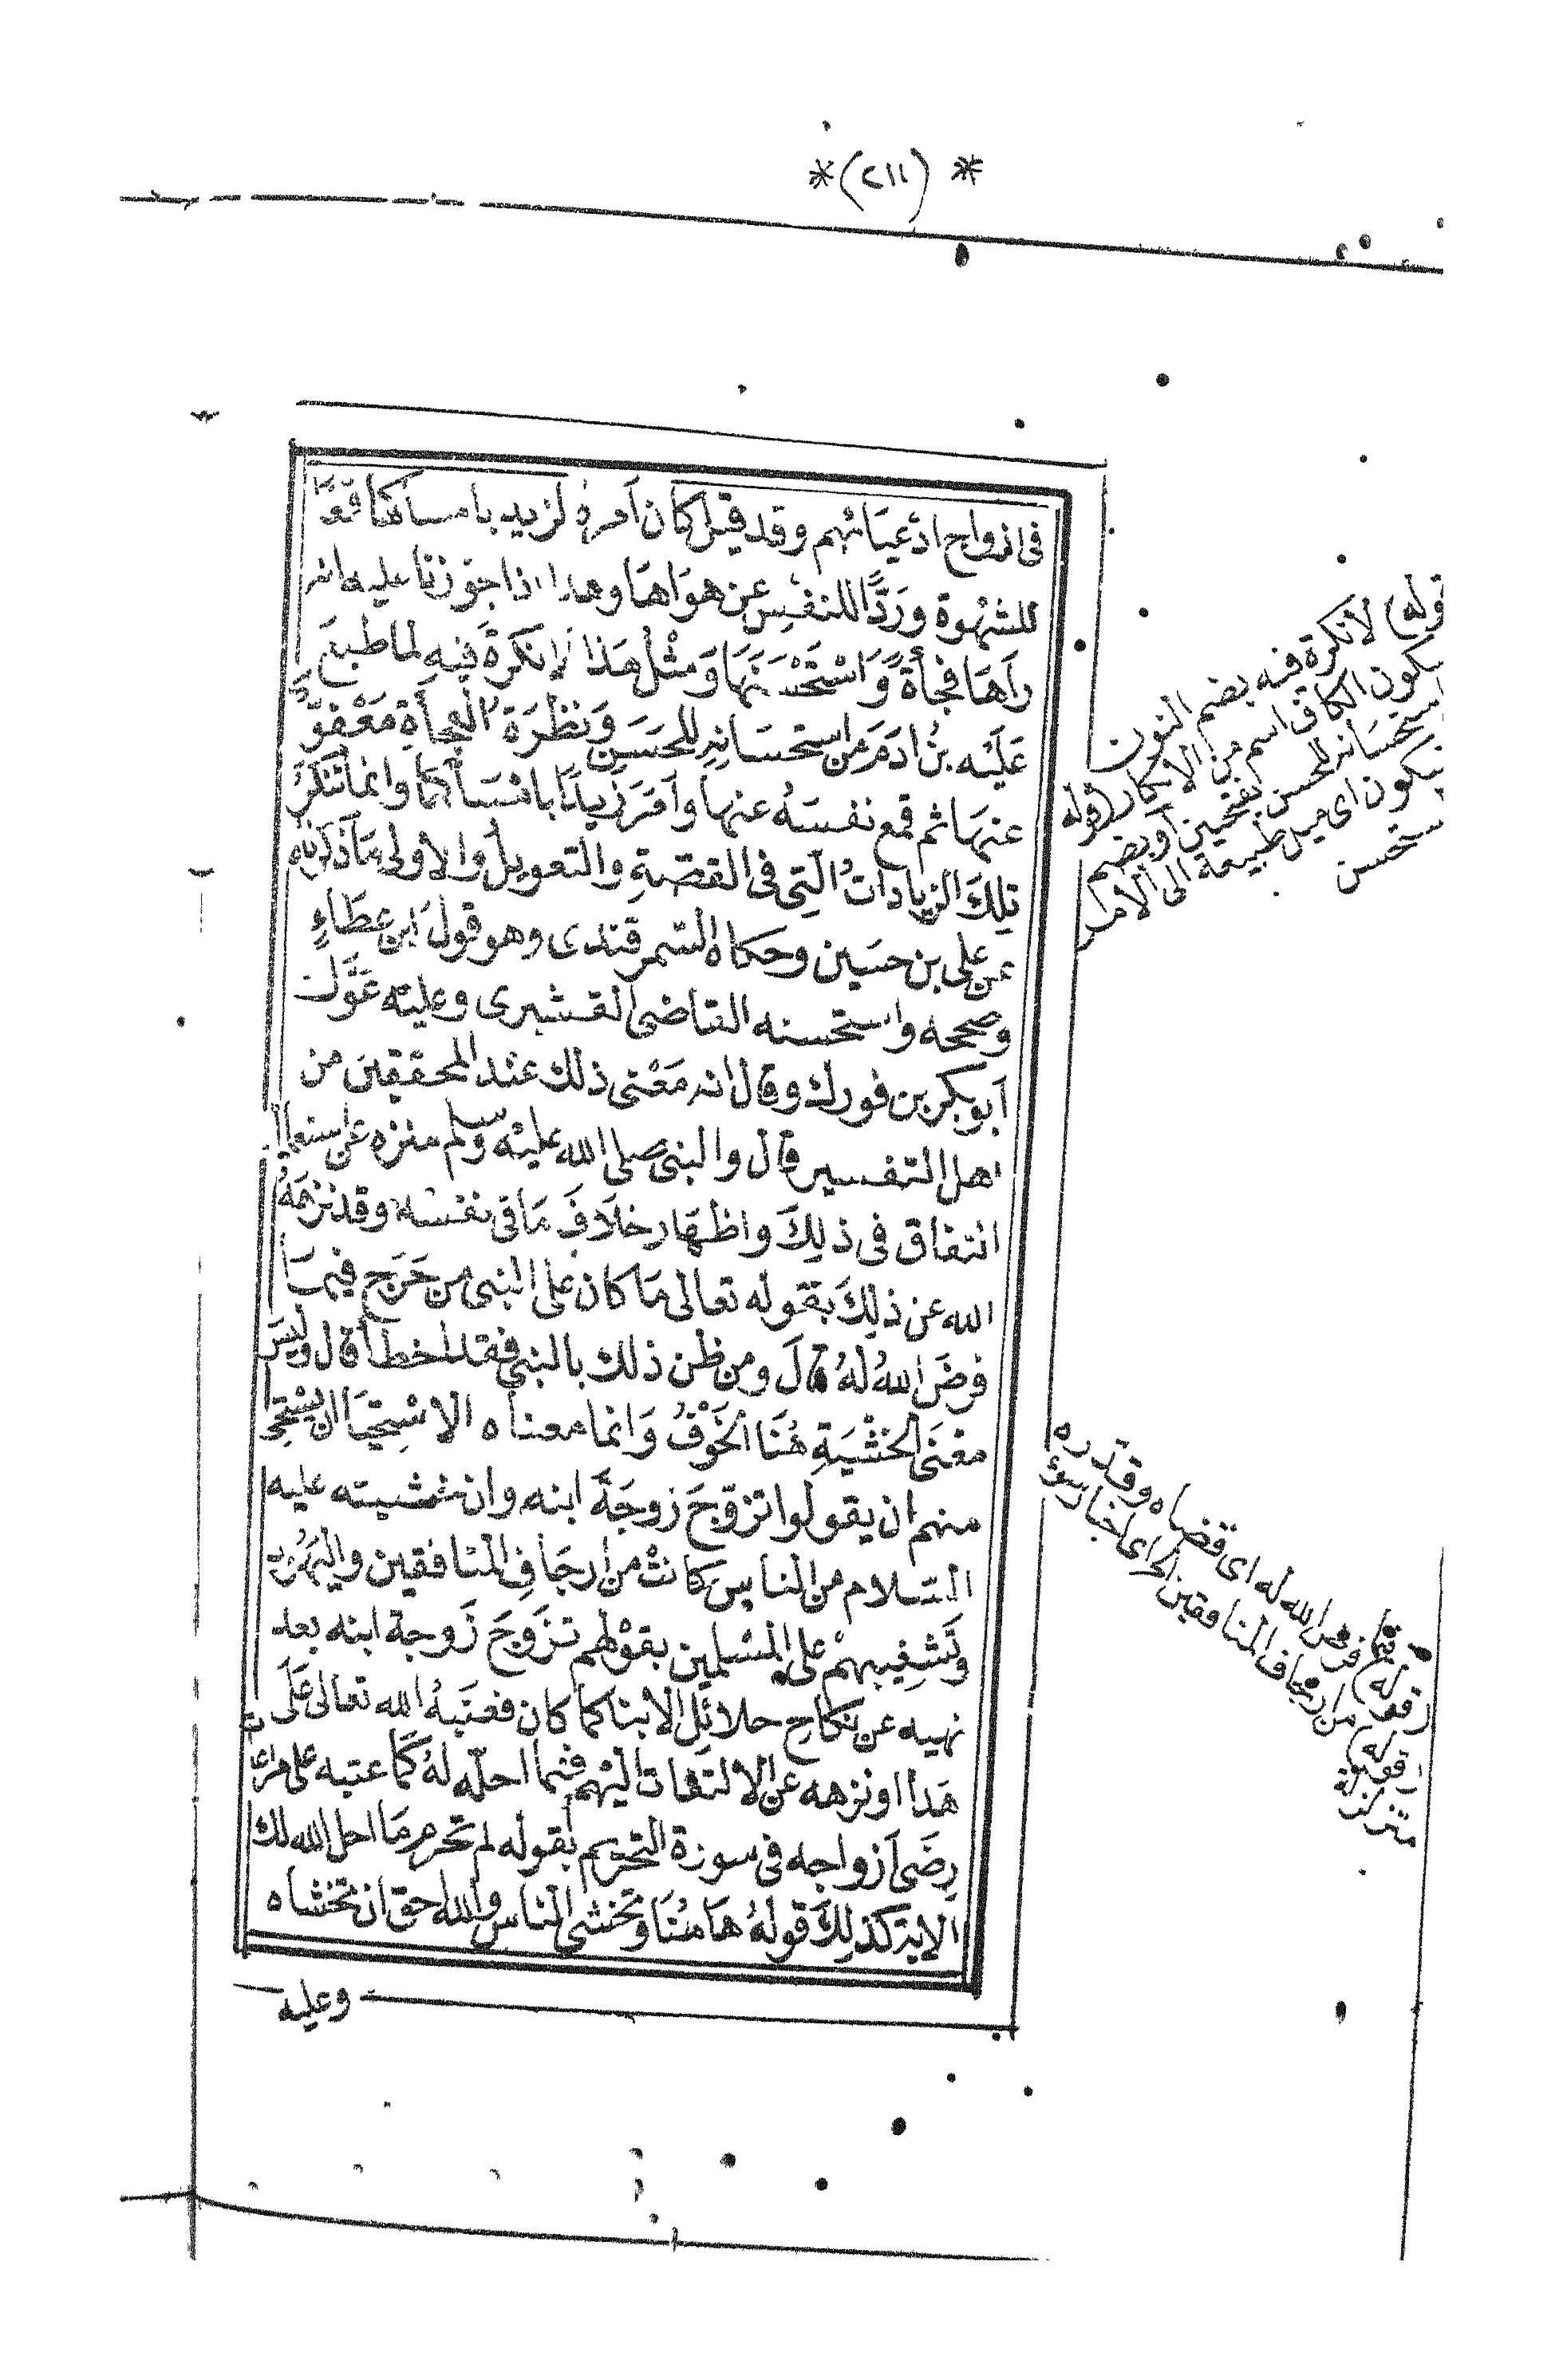 *(٢١١)*
فى ازواج ادعيَائهم وقد قيل كان اَمره لزيد بامساكها قمعًا
للشهْوة ورَدًّا للنفس عن هوَاهَا وهذا اذا جوزنا عليه انه
راَهَا فجأةً وَاسْتَحْسَنَهَا وَمثْل هَذا لا نكرةَ فيه لما طبعَ
عَليْه بنُ ادَمَ من استحسَانه للحسَن وَنظْرَة الفجأَةِ مَعْفوٌّ
عنهَا ثم قمع نفسَهُ عنها واَمَرَ زيدًا بامْسَاكها وانما تنكرُ
تلكَ الزيادَاتُ الّتى فى القصّةِ والتعويلُ والاولى مَا ذكرناه
عن على بن حسَين وحكاه السّمرقندى وهو قولُ ابن عطَاءٍ
وصححه واستحسنه القاضى القشيرى وعليْه عَوَّلَ
اَبو بكر بن فورك وقال انه مَعْنى ذلك عند المحققينَ من
اهل التفسير قال والنبى صلى الله عليْه وسلم منزه عن استعمال
النفاق فى ذلِكَ واظهَار خلَافَ مَا فى نفسه وقد نزهَهُ
الله عن ذلِكَ بقوله تعالى مَا كان على النبى من حَرَج فيمَا
فرضَ اللهُ لهُ قالَ ومن ظن ذلك بالنبى فقد اخطأ قال وليسَ
معْنَى الخشْيَةِ هُنَا الخَوْفُ وَانما معناه الاسْتِحْيَا ان يسْتحى
منهم ان يقولوا تزوّجَ زوجَةَ ابنه وان خشيته عليه
السّلام من الناس كانتْ من ارجَافِ المنافقين واليَهُود
وَتَشْغِيبهمْ على المسْلمين بقوْلهم تزَوجَ زَوجة ابنه بعد
نهيه عن نكاح حلائِل الابنا كما كان فعتَبهُ الله تعالى عَلَى
هَذا ونزهه عن الالتفات اليْهم فيما احلّه لهُ كمَا عتبه على مراعاة
رِضَى اَزواجه فى سورَة التحريم بقوله لم تحرم مَا احل الله لك
الاية كذلِكَ قولهُ هَاهُنَا وتخشى الناس والله احق ان تخشاه
وعليه
قوله) لا نكرة فيه بضم النون
بكون الكاف اسم من الانكار (قوله
استحسانه للحسن بفتحين او بضم
فيكون اى ميل طبيعة الى الامر
ستحسن
(قوله) فيما فرض الله له اى قضاه وقدره
(قوله) من ارجاف المنافقين الخ اى اخبار سوء
متزلزلة